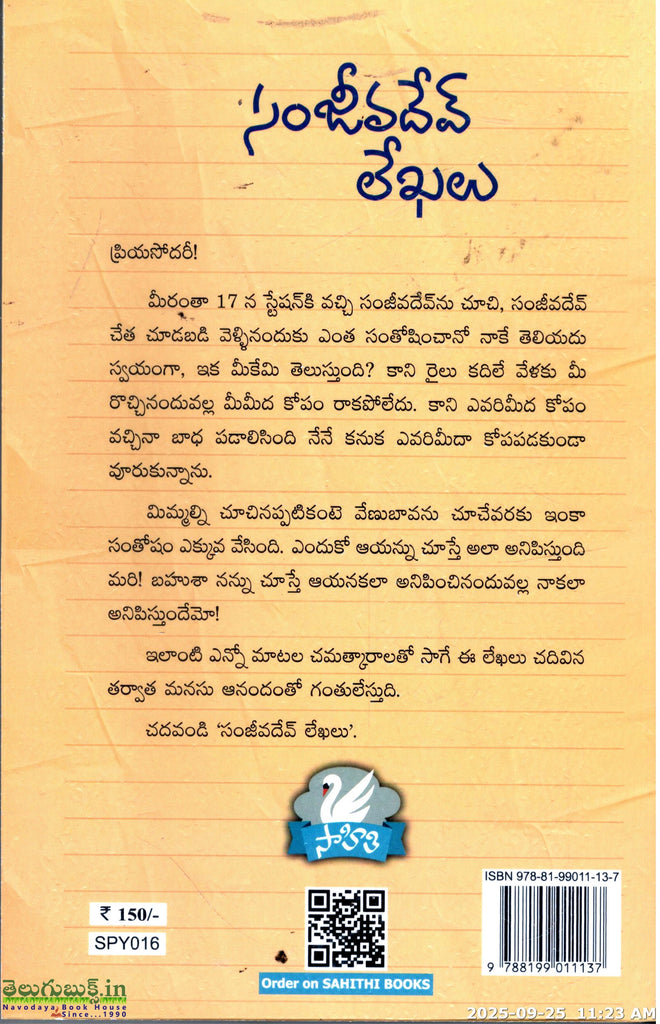 సంజీవదేవ్
లేఖలు
ప్రియసోదరీ!
మీరంతా 17 న స్టేషన్‌కి వచ్చి సంజీవదేవ్‌ను చూచి, సంజీవదేవ్
చేత చూడబడి వెళ్ళినందుకు ఎంత సంతోషించానో నాకే తెలియదు
స్వయంగా, ఇక మీకేమి తెలుస్తుంది? కాని రైలు కదిలే వేళకు మీ
రొచ్చినందువల్ల మీమీద కోపం రాకపోలేదు. కాని ఎవరిమీద కోపం
వచ్చినా బాధ పడాలిసింది నేనే కనుక ఎవరిమీదా కోపపడకుండా
వూరుకున్నాను.
మిమ్మల్ని చూచినప్పటికంటె వేణుబావను చూచేవరకు ఇంకా
సంతోషం ఎక్కువ వేసింది. ఎందుకో ఆయన్ను చూస్తే అలా అనిపిస్తుంది
మరి! బహుశా నన్ను చూస్తే ఆయనకలా అనిపించినందువల్ల నాకలా
అనిపిస్తుందేమో!
ఇలాంటి ఎన్నో మాటల చమత్కారాలతో సాగే ఈ లేఖలు చదివిన
తర్వాత మనసు ఆనందంతో గంతులేస్తుది.
చదవండి ‘సంజీవదేవ్ లేఖలు’.
సాహితి
ISBN 978-81-99011-13-7
₹ 150/-
SPY016
9 788199 011137
Order on SAHITHI BOOKS
తెలుగుబుక్స్.in
Navodaya Book House
Since...1990
2025-09-25 11:23 AM